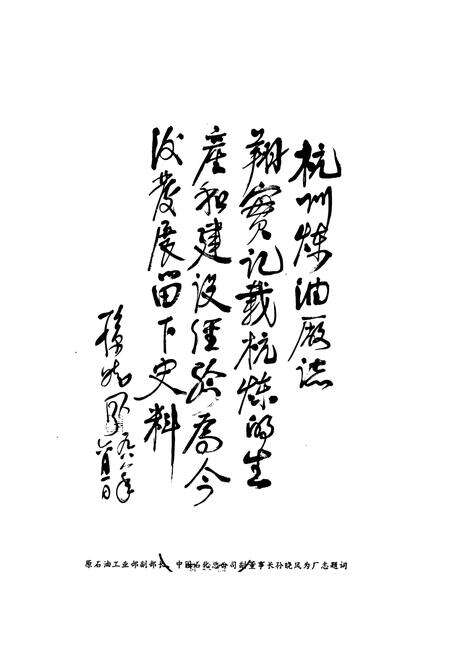 杭州炼油厰誌
翔實记载杭炼的生
産和建设经验為今
後發展留下史料
孫晓风
一九八八年
六月一日
原石油工业部副部长、中国石化总公司副董事长孙晓风为厂志题词